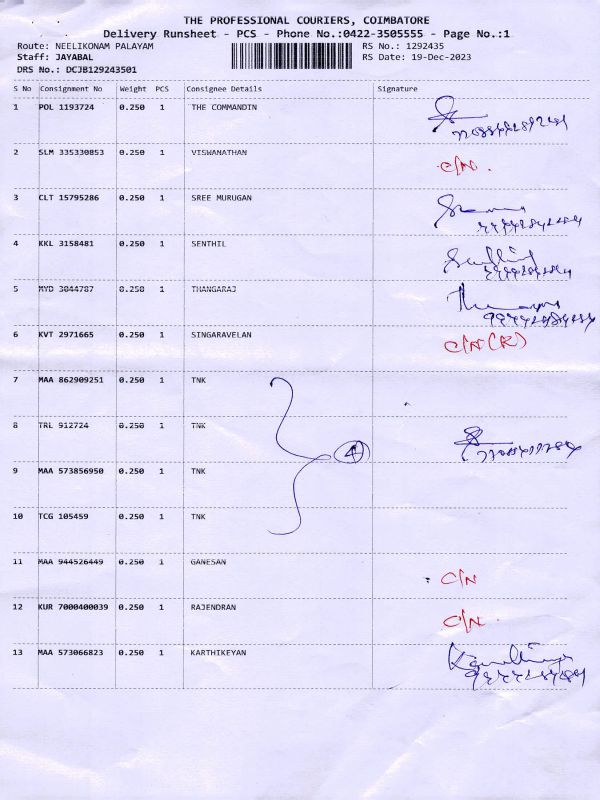 THE PROFESSIONAL COURIERS, COIMBATORE
Delivery Runsheet - PCS - Phone No.:0422-3505555 - Page No.:1
Route: NEELIKONAM PALAYAM RS No.: 1292435
Staff: JAYABAL RS Date: 19-Dec-2023
DRS No.: DCJB129243501
S No Consignment No Weight PCS Consignee Details Signature
1 POL 1193724 0.250 1 THE COMMANDIN
2 SLM 335330853 0.250 1 VISWANATHAN C/N.
3 CLT 15795286 0.250 1 SREE MURUGAN
4 KKL 3158481 0.250 1 SENTHIL
5 MYD 3044787 0.250 1 THANGARAJ
6 KVT 2971665 0.250 1 SINGARAVELAN C/N (R)
7 MAA 862909251 0.250 1 TNK
8 TRL 912724 0.250 1 TNK 4
9 MAA 573856950 0.250 1 TNK
10 TCG 105459 0.250 1 TNK
11 MAA 944526449 0.250 1 GANESAN C/N
12 KUR 7000400039 0.250 1 RAJENDRAN C/N.
13 MAA 573066823 0.250 1 KARTHIKEYAN